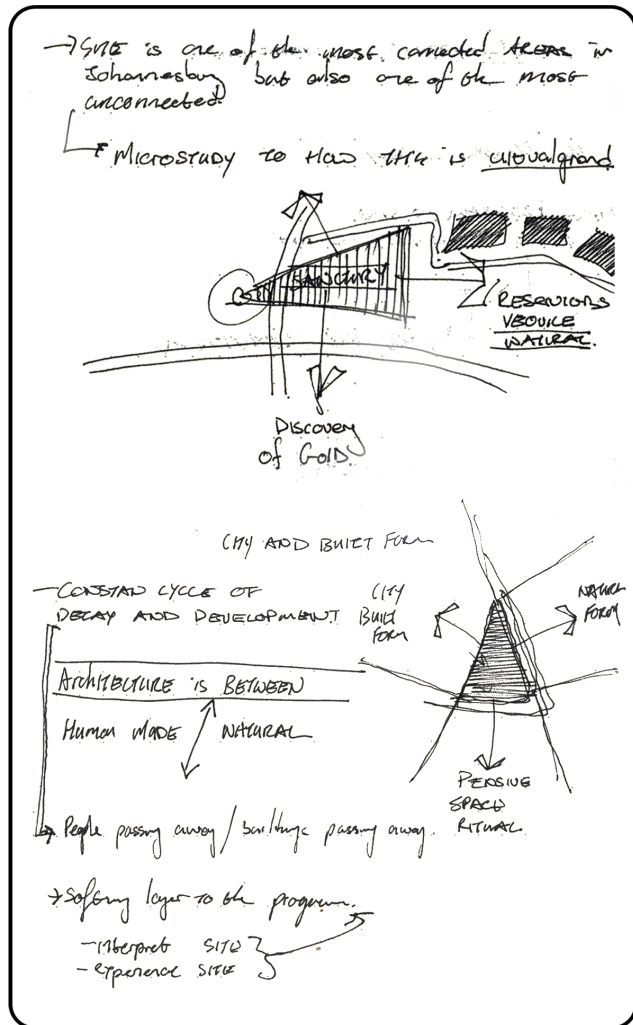 → SITE is one of the most connected AREAS in
Johannesburg but also one of the most
unconnected.
MICROSTUDY to HOW THIS is
SANCTURY
RESERVIORS
NATURAL.
Discovery
of GOLD.
CITY AND BUILT FORM
— CONSTAN CYCLE OF
DECAY AND DEVELOPMENT
CITY
BUILT
FORM
NATURL
FORM
ARCHITECTURE is BETWEEN
Human MADE NATURAL
PENSIVE
SPACE
RITUAL
→ People passing away / buildings passing away.
→ Softning layer to the program.
- interpret SITE
- experience SITE